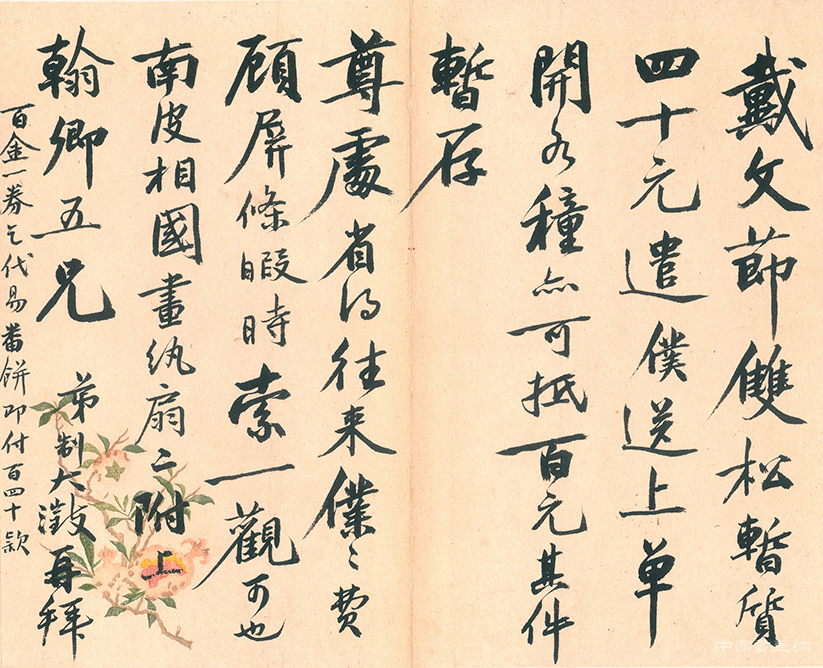 戴文節雙松暫質
四十元遣僕送上單
開各種亦可抵百元其件
暫存
尊處省得往来僕僕之費
顧屏條暇時索一觀可也
南皮相國畫紈扇二附上
翰卿五兄
弟制大澂再拜
百金一券乞代易番餅即付百四十款